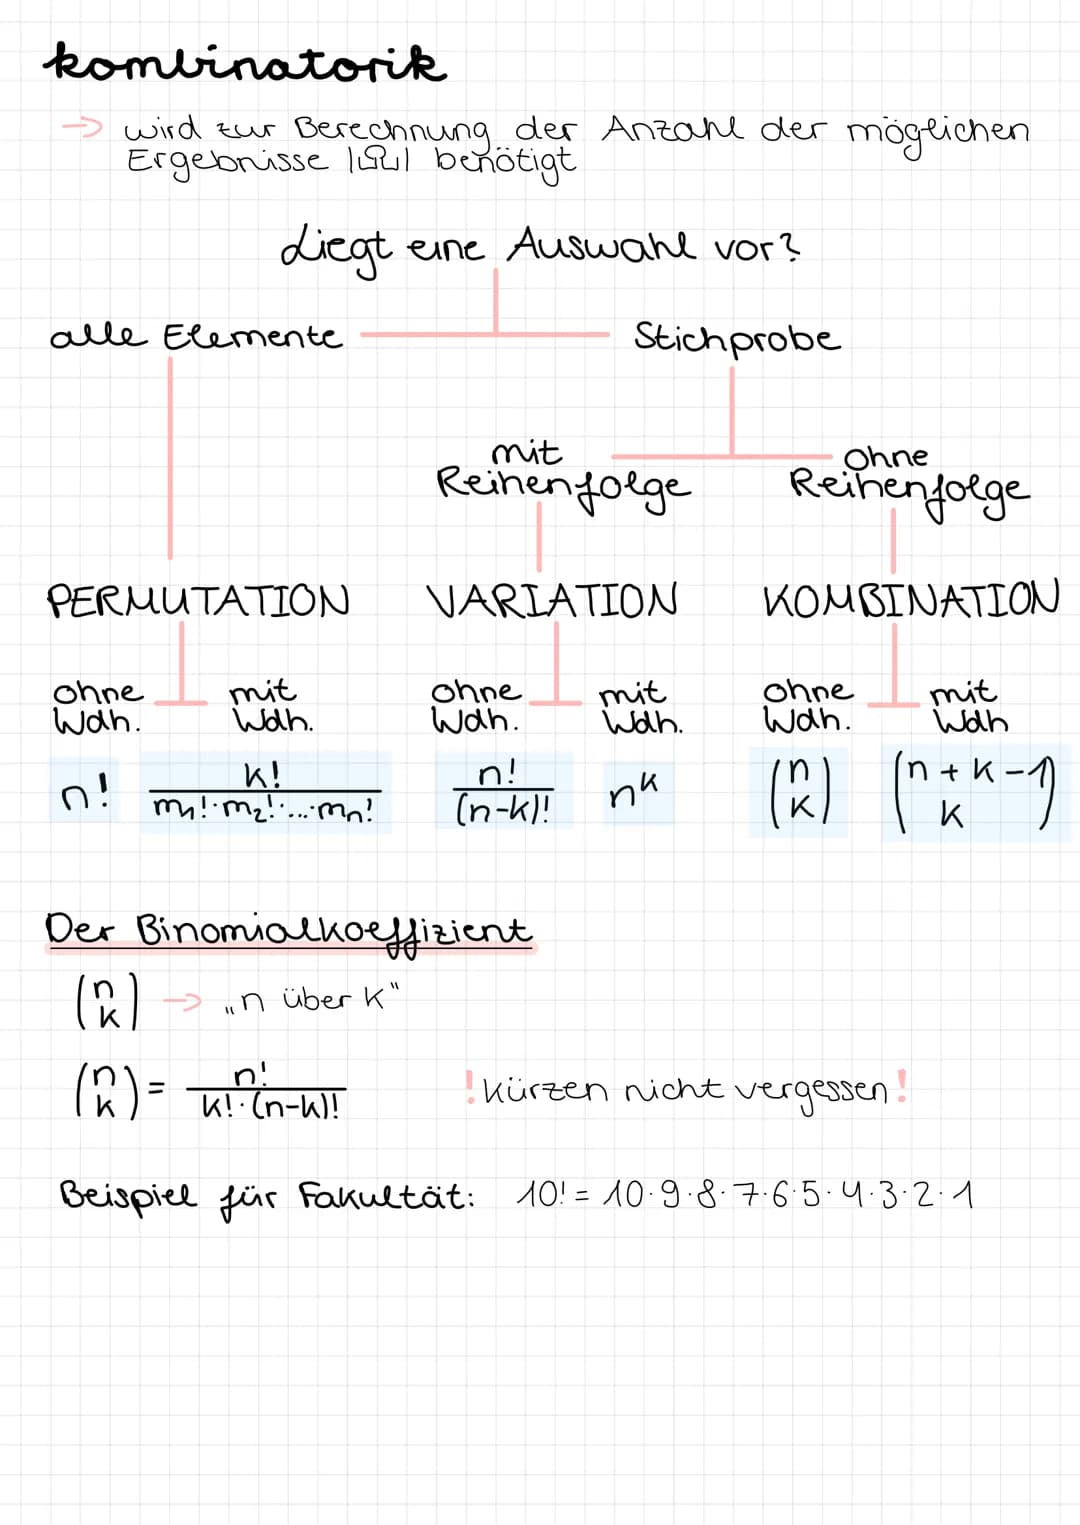 kombinatorik
→ wird zur Berechnung der Anzahl der möglichen
Ergebnisse |Ω| benötigt
Liegt eine Auswahl vor?
alle Elemente Stichprobe
mit ohne
Reihenfolge Reihenfolge
PERMUTATION VARIATION KOMBINATION
ohne mit ohne mit ohne mit
Wdh. Wdh. Wdh. Wdh. Wdh. Wdh
n! k!/(m₁!·m₂!·...·mₙ!) n!/(n-k)! nᵏ (n über k) (n+k-1 über k)
Der Binomialkoeffizient
(n k) → „n über k"
(n k) = n!/(k!·(n-k)!) !kürzen nicht vergessen!
Beispiel für Fakultät: 10! = 10·9·8·7·6·5·4·3·2·1